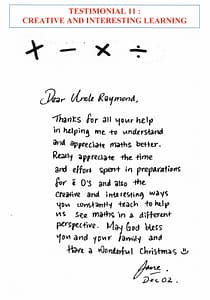 TESTIMONIAL 11 :
CREATIVE AND INTERESTING LEARNING
+ - × ÷
Dear Uncle Raymond,
Thanks for all your help
in helping me to understand
and appreciate maths better.
Really appreciate the time
and effort spent in preparations
for ē O's and also the
creative and interesting ways
you constantly teach to help
us see maths in a different
perspective. May God bless
you and your family and
Have a Wonderful Christmas
June
Dec 02.